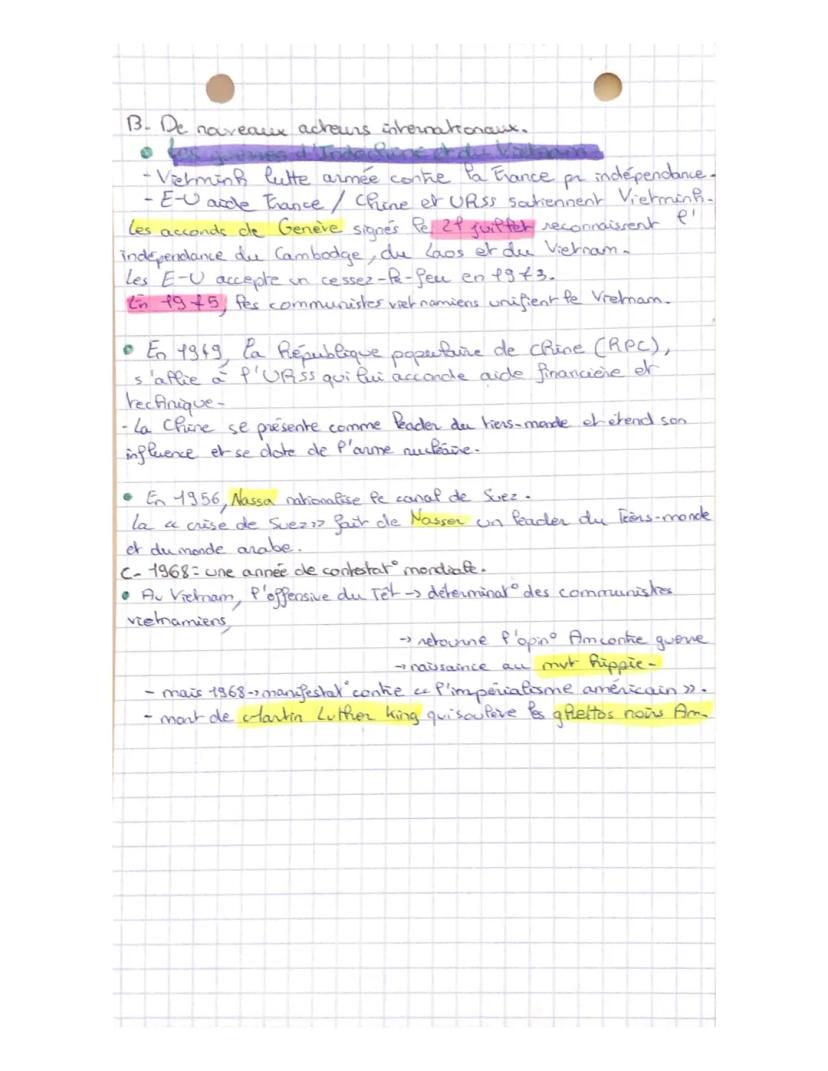 B- De nouveaux acteurs internationaux.
• Les guerres d'Indochine et du Vietnam
- Vietminh lutte armée contre la France pr indépendance.
- E-U aide France / Chine et URSS soutiennent Vietminh.
Les accords de Genève signés le 21 juillet reconnaissent l'
indépendance du Cambodge, du Laos et du Vietnam.
Les E-U accepte un cessez-le-feu en 1973.
En 1975, les communistes vietnamiens unifient le Vietnam.
• En 1949, la République populaire de Chine (RPC),
s'allie à l'URSS qui lui accorde aide financière et
technique.
- La Chine se présente comme leader du tiers-monde et étend son
influence et se dote de l'arme nucléaire.
• En 1956, Nassa nationalise le canal de Suez.
La « crise de Suez » fait de Nasser un leader du Tiers-monde
et du monde arabe.
C- 1968 : une année de contestat° mondiale.
• Au Vietnam, l'offensive du Têt -> déterminat° des communistes
vietnamiens,
-> retourne l'opin° Am contre guerre
-> naissance au mvt hippie.
- mais 1968 -> manifestat° contre « l'impérialisme américain ».
- mort de Martin Luther King qui soulève les ghettos noirs Am.